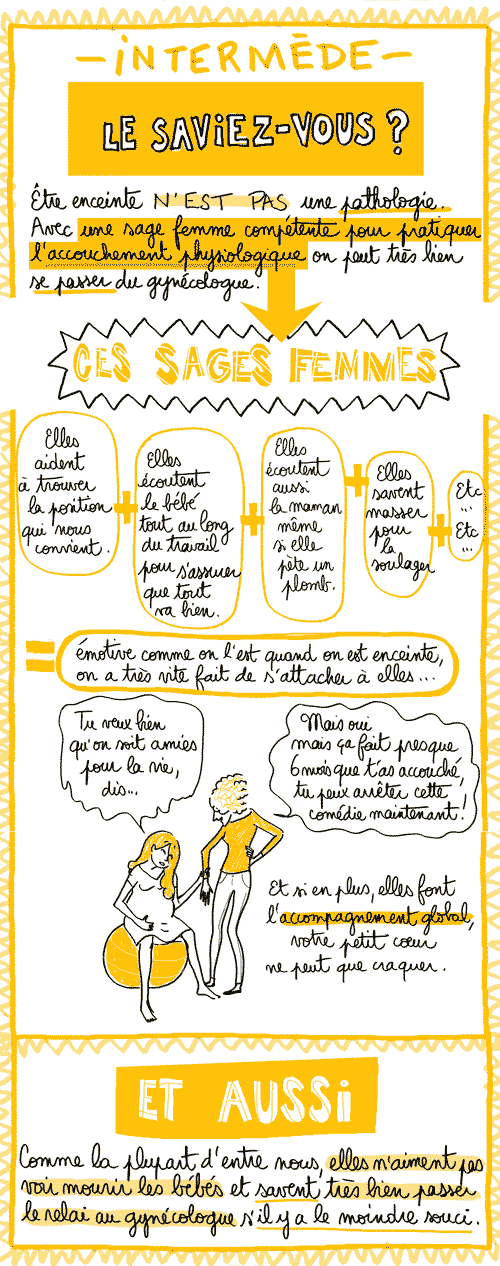 -iNTERMÈDE-
LE SAViEZ-VOUS ?
Être enceinte N'EST PAS une pathologie.
Avec une sage femme compétente pour pratiquer
l'accouchement physiologique on peut très bien
se passer du gynécologue.
CES SAGES FEMMES
Elles
aident
à trouver
la position
qui nous
convient.
+
Elles
écoutent
le bébé
tout au long
du travail
pour s'assurer
que tout
va bien.
+
Elles
écoutent
aussi
la maman
même
si elle
pète un
plomb.
+
Elles
savent
masser
pour
la
soulager
+
Etc
...
Etc
...
=
émotive comme on l'est quand on est enceinte,
on a très vite fait de s'attacher à elles...
Tu veux bien
qu'on soit amies
pour la vie,
dis...
Mais oui
mais ça fait presque
6 mois que t'as accouché,
tu peux arrêter cette
comédie maintenant !
Et si en plus, elles font
l'accompagnement global,
votre petit cœur
ne peut que craquer.
ET AUSSi
Comme la plupart d'entre nous, elles n'aiment pas
voir mourir les bébés et savent très bien passer
le relai au gynécologue s'il y a le moindre souci.